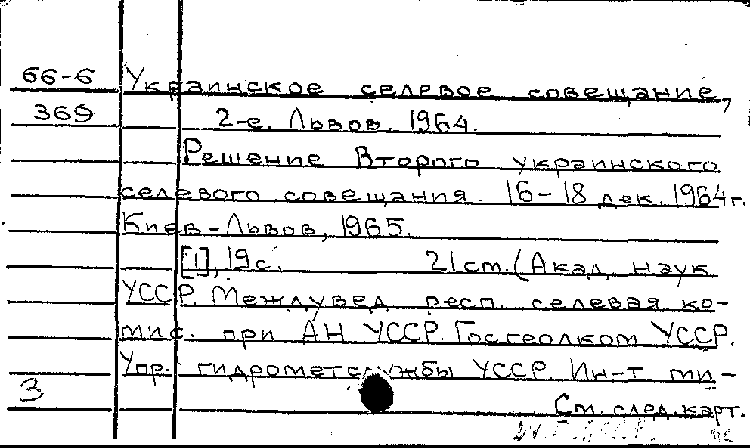 66-6 Украинское селевое совещание,
369 2-е. Львов. 1964.
Решение Второго украинского
селевого совещания. 16-18 дек. 1964г.
Киев-Львов, 1965.
[1], 19с. 21см. (Акад. наук
УССР. Междувед. респ. селевая ко-
мис. при АН УССР. Госгеолком УССР.
Упр. гидрометслужбы УССР. Ин-т ми-
3 См. след. карт.